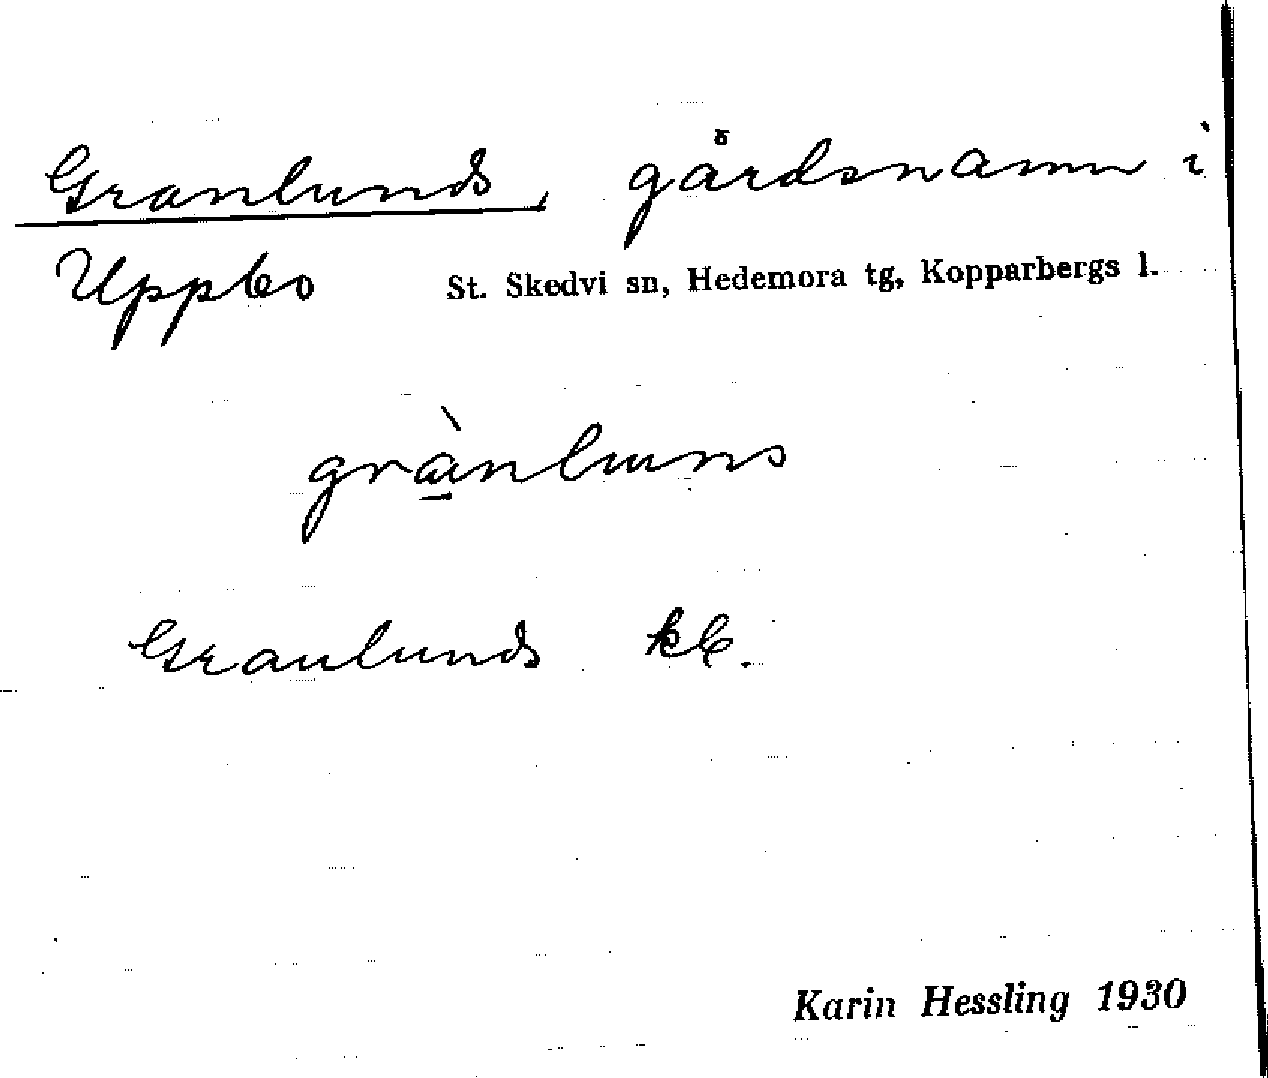 Granlunds, gårdsnamn i
Uppbo St. Skedvi sn, Hedemora tg, Kopparbergs l.
grànluns
Granlunds kb.
Karin Hessling 1930